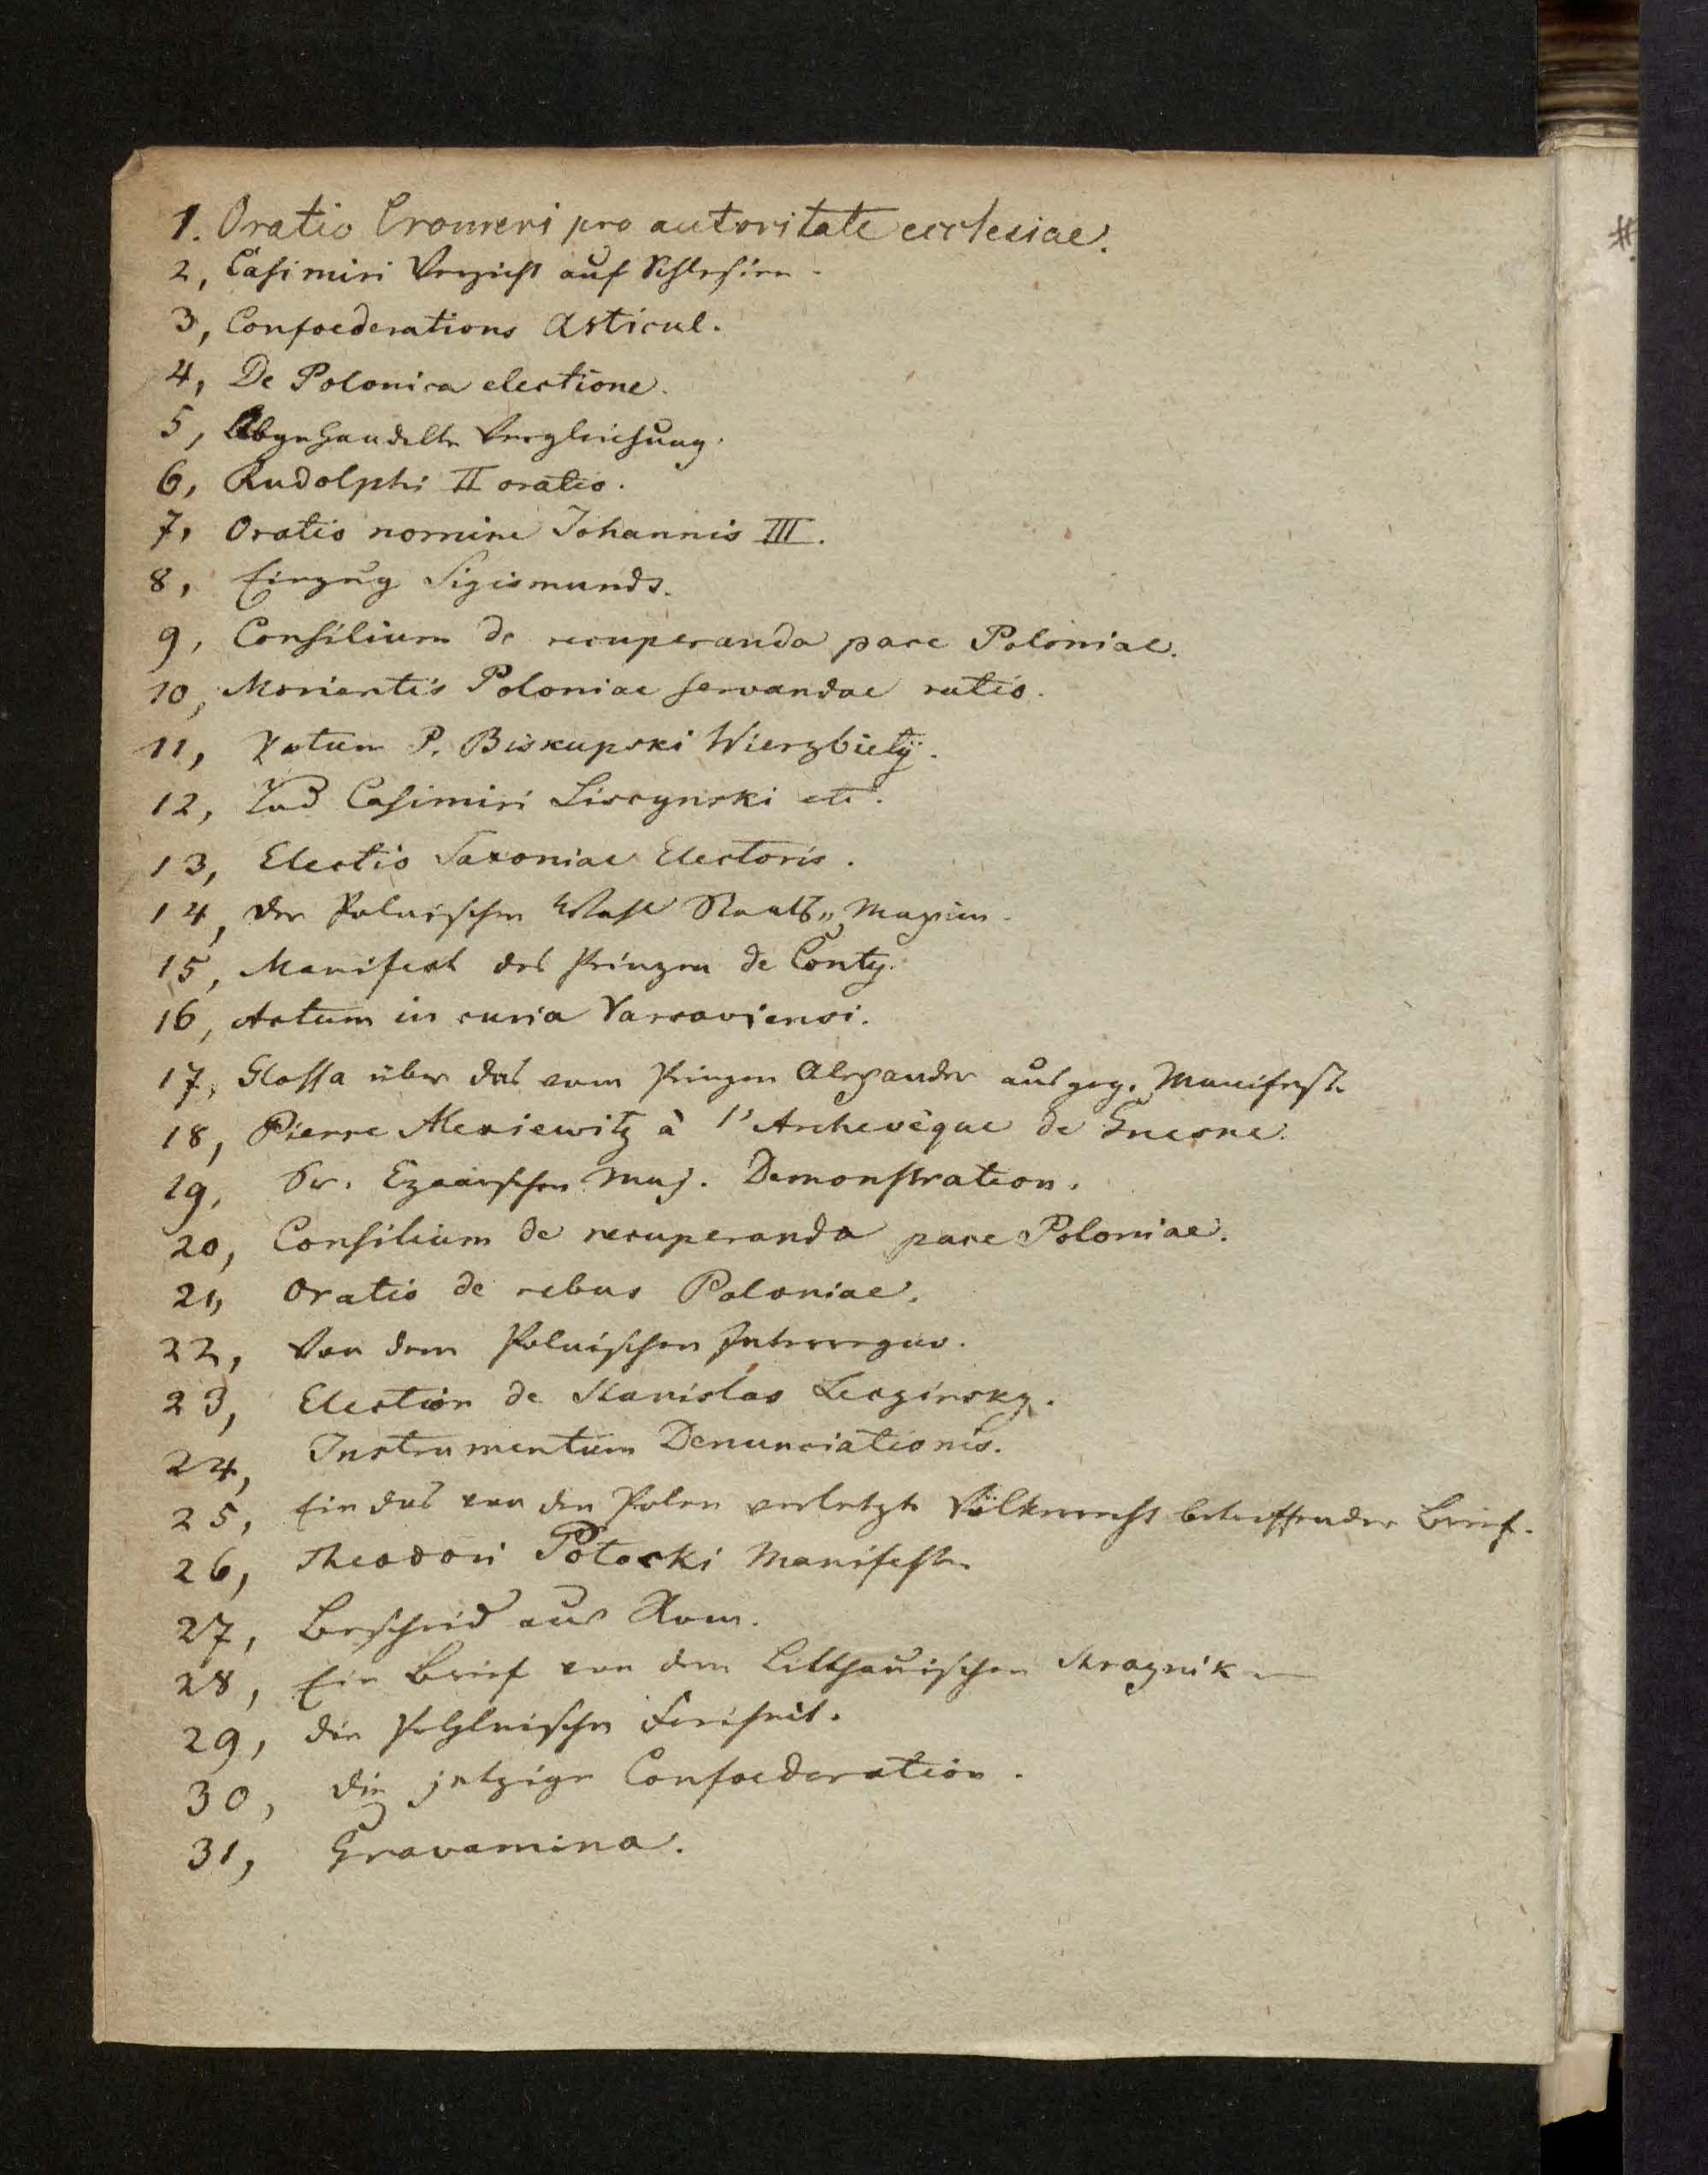 1. Oratio Cromeri pro autoritate ecclesiae.
2, Casimiri Verzicht auf Schlesien.
3, Confoederations Articul.
4, De Polonica electione.
5, Abgehandelte Vergleichung.
6, Rudolphi II oratio.
7, Oratio nomine Johannis III.
8, Einzug Sigismunds.
9, Consilium de recuperanda pace Poloniae.
10, Morientis Poloniae servandae ratio.
11, Votum P. Biskupski Wierzbiety.
12, Tod Casimiri Liscynski etc.
13, Electio Saxoniae Electoris.
14, der Polnischen Wahl Staats„Maxim.
15, Manifest des Prinzen de Conty.
16, Actum in curia Varsaviensi.
17, Glossa über das vom Prinzen Alexander ausgeg. Manifest.
18, Pierre Alexiewitz à l'Archevêque de Gnesne.
19, Sr. Czaarischen Maj. Demonstration.
20, Consilium de recuperanda pace Poloniae.
21, Oratio de rebus Poloniae.
22, Von dem Polnischen Interregno.
23, Election de Stanislas Leszinsky.
24, Instrumentum Denunciationis.
25, Ein das von den Polen verletzte Völkerrecht betreffender Brief.
26, Theodori Potocki Manifest.
27, Bescheid aus Rom.
28, Ein Brief von dem Litthauischen Straznik
29, die Pohlnische Freiheit.
30, die jetzige Confoederation.
31, Gravamina.
#.